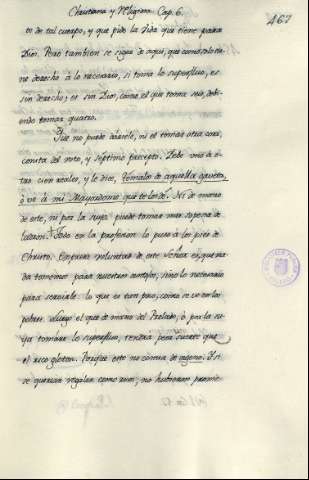 Christiana y Religiosa. Cap. 6. 467
to de tal cuerpo, y que pide la vida que tiene para
Dios. Pero tambien se sigue de aqui, que como solo tie
ne derecho à lo necesario, si toma lo superfluo, es
sin derecho; es sin Dios, como el que toma seis, debi
endo tomar quatro.
Que no puede darsele, ni el tomar otra cosa,
contra del voto, y septimo precepto. Debo una de
cien reales, y le dice, tomalos de aquella gaveta,
ò ve à mi Mayordomo que te los dè. Ni de mano
de este, ni por la suya puede tomar mas sopena de
ladron. Todo en la profesion lo puso à los pies de
Christo. Expresa voluntad de este Señor es, que na
da tomemos para nuestros antojos, sino lo necesario
para servirle: lo que es tan poco, como se ve en los
pobres. Luego el que de mano del Prelado, ò por la su
ya tomare lo superfluo, tendrà pena succeso que
el rico gloton. Porque este no comia de ageno. Y si
se quisiese regalar como aquel, no hubieran